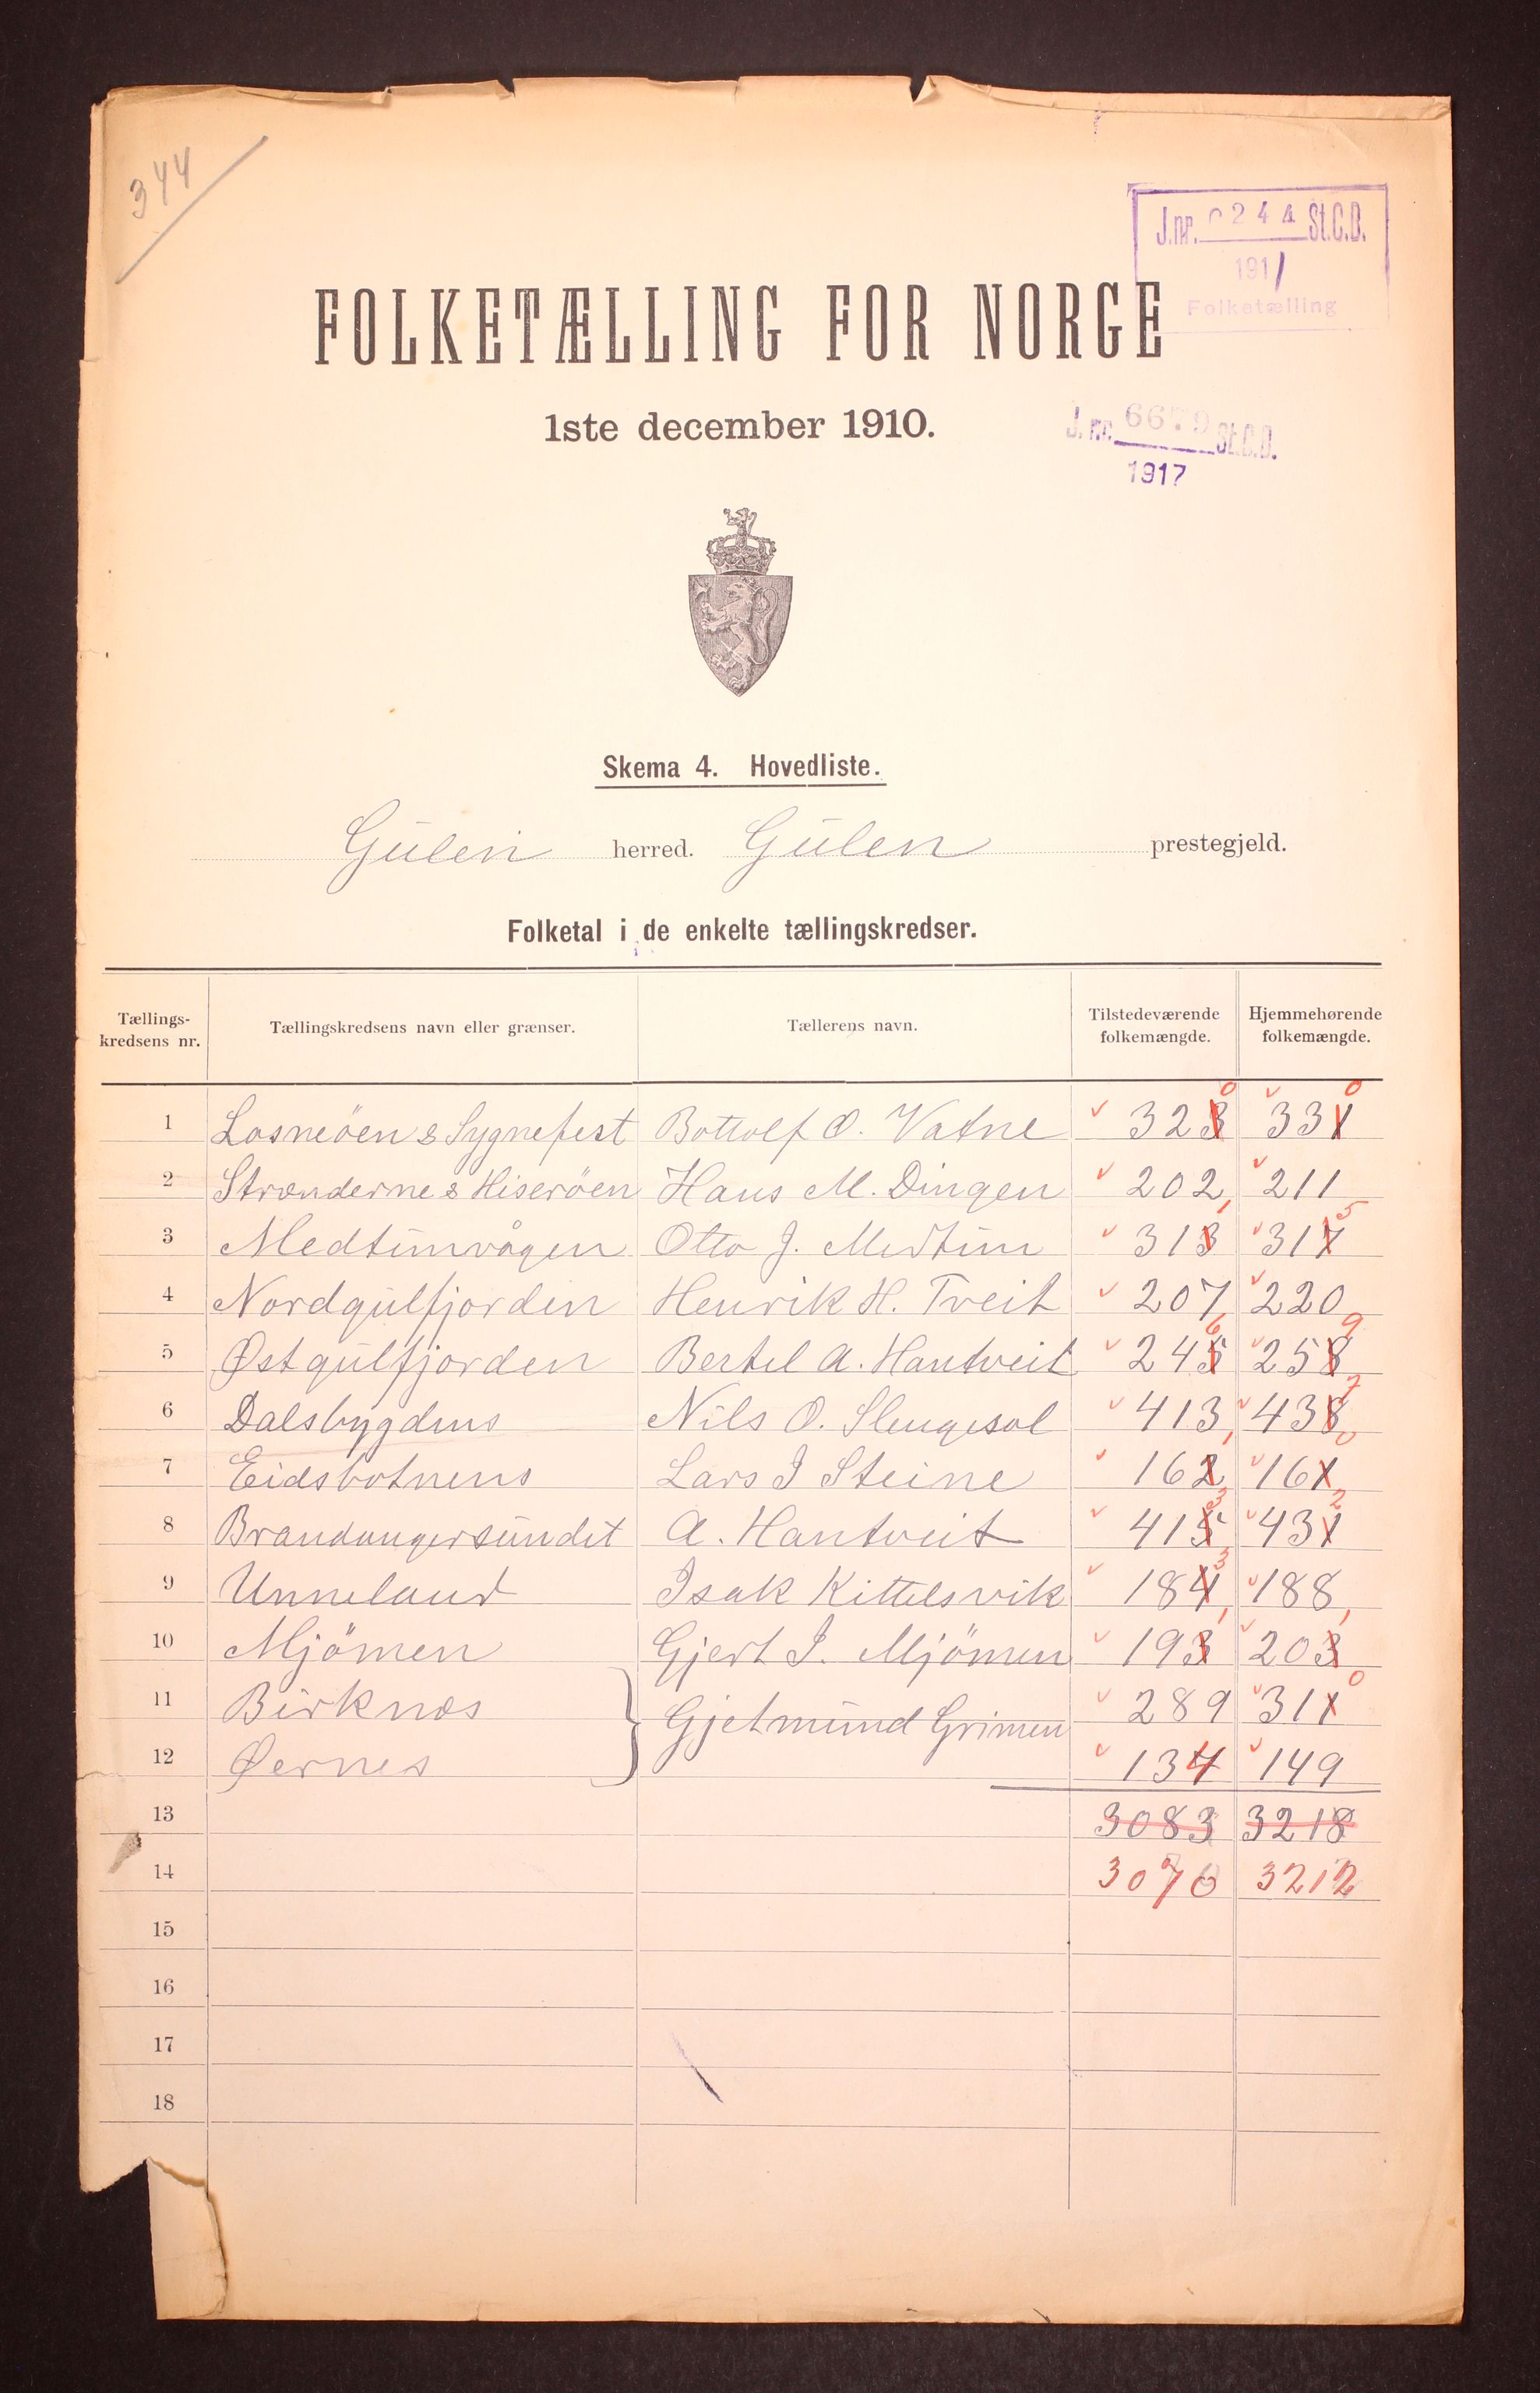 344
J.nr. 0244 St.C.B.
1911
Folketælling
FOLKETÆLLING FOR NORGE
1ste december 1910.
J. nr. 6679 St.C.B.
1917
Skema 4. Hovedliste.
Gulen herred. Gulen prestegjeld.
Folketal i de enkelte tællingskredser.
Tællings-kredsens nr. Tællingskredsens navn eller grænser. Tællerens navn. Tilstedeværende folkemængde. Hjemmehørende folkemængde.
1 Losneöen & Sygnefest Bottolf O. Vatne 323 0 331 0
2 Strænderne & Hiseröen Hans M. Dingen 202 211
3 Medtunvågen Otto J. Medtun 313 1 317 5
4 Nordgulfjorden Henrik H. Tveit 207 220
5 Østgulfjorden Bertel A. Hantveit 245 6 258 9
6 Dalsbygdens Nils O. Slengesol 413 438 7
7 Eidsbotnens Lars J Steine 162 1 161 0
8 Brandangersundet A. Hantveit 415 3 431 2
9 Unneland Isak Kittelsvik 184 3 188
10 Mjömen Gjert I. Mjömen 193 1 203 1
11 Birknæs Gjetmund Grimen 289 311 0
12 Øernes 134 149
13 3083 3218
14 3070 3212
15
16
17
18